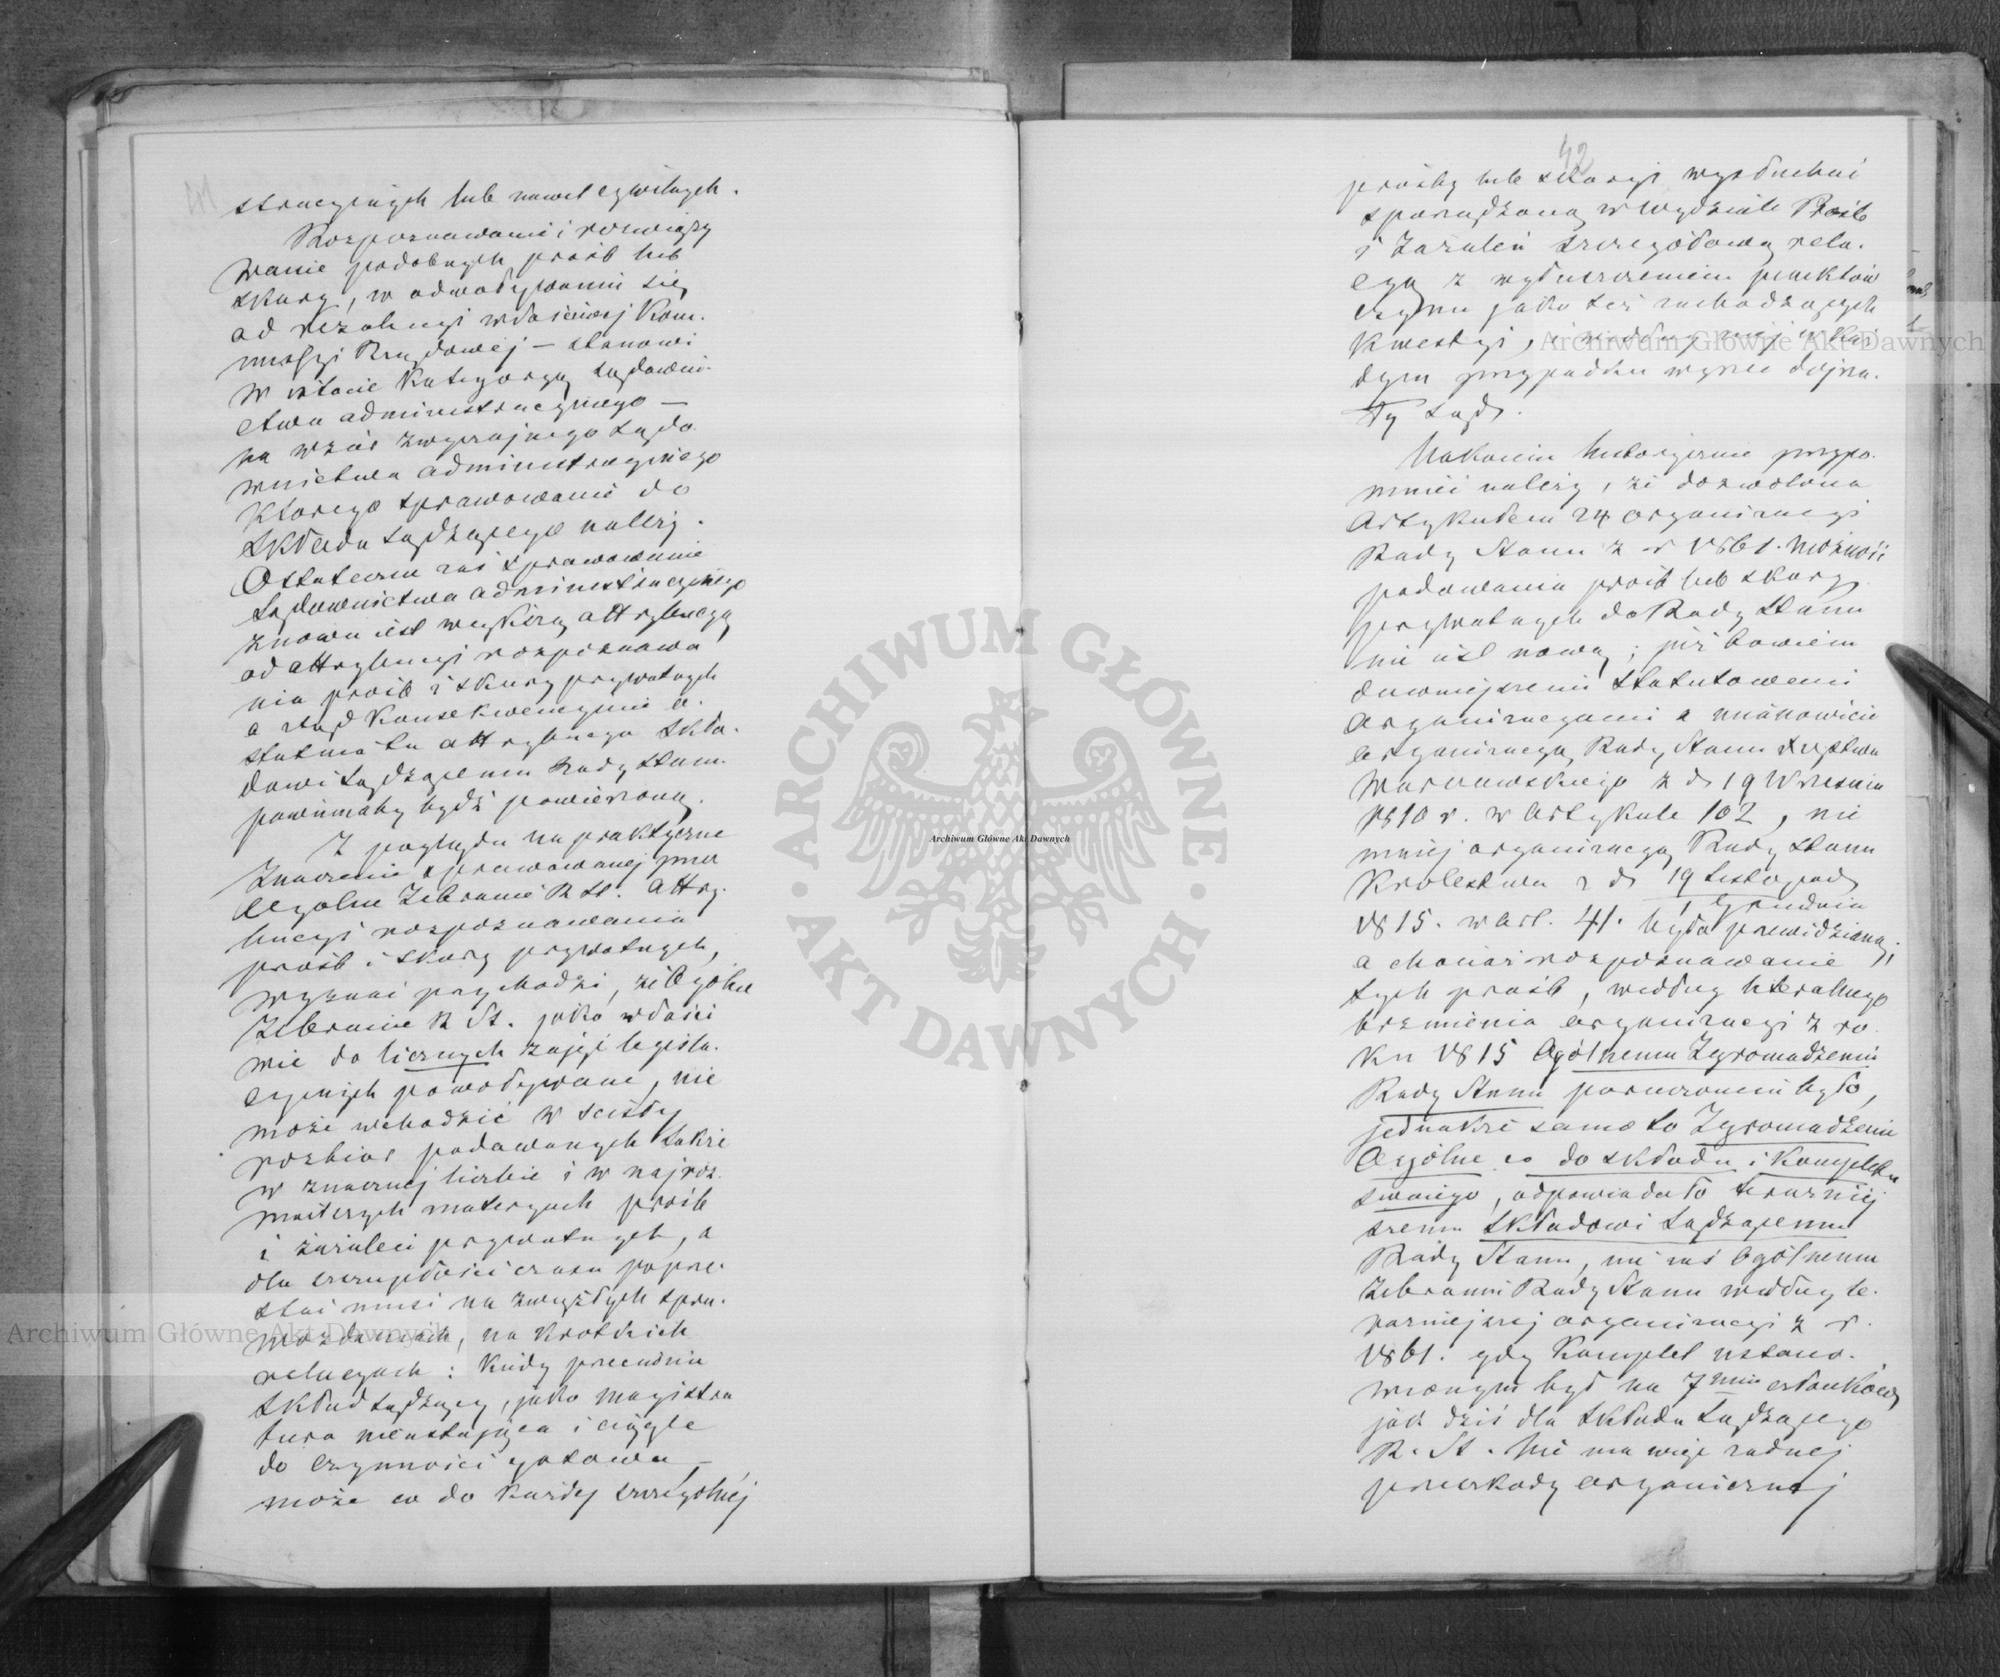 stracyjnych lub nawet cywilnych.
Rozpoznawanie i rozwiązy
wanie podobnych próśb lub
skarg, w odwoływaniu się
od rezolucyi właściwej Kom.
missyi Rządowej — stanowi
w istocie Kategoryą sądowni-
ctwa administracyjnego —
na wzór zwyczajnego sądo
wnictwa administracyjnego
którego sprawowanie do
Składu Sądzącego należy.
Ostateczne zaś sprawowanie
sądownictwa administracyjnego
znowu jest większą attrybucyą
od attrybucyi rozpoznawa
nia próśb i skarg prywatnych
a ztąd konsekwencyjnie o.
statnia ta attrybucya Skła.
dowi Sądzącemu Rady Stanu.
powinnaby bydź powierzoną.
Z poglądu na praktyczne
znaczenie sprawowanej przez
Ogólne Zebranie R St. attry.
bucyi rozpoznawania
próśb i skarg prywatnych,
wyznać przychodzi, że Ogólne
Zebranie R St. jako właści
wie do licznych zajęć legisla.
cyjnych powoływane, nie
może wchodzić w ścisły
rozbiór podawanych także
w znacznej liczbie i w najroz.
maitszych materyach próśb
i zażaleń prywatnych, a
dla szczupłości czasu poprze.
stać musi na zwięzłych spra.
wozdaniach, na krótkich
relacyach: Kiedy przeciwnie
Skład Sądzący, jako magistra
tura nieustająca i ciągle
do czynności gotowa —
może co do każdej szczególnej
42
prośby lub skargi wysłuchać
sporządzoną w Wydziale Próśb
i Zażaleń szczegółową rela.
cyą z wyłuszczeniem punktów
czynu jako też zachodzących
Kwestyi, i według niej w każ
dym przypadku wyrzec dojrza.
ły sąd.
Nakoniec historycznie przypo.
mnieć należy, że dozwolona
Artykułem 24 organizacyi
Rady Stanu z r 1861. możność
podawania próśb lub skarg
prywatnych do Rady Stanu
nie jest nową; już bowiem
dawniejszemi statutowemi
organizacyami a mianowicie
organizacyą Rady Stanu Xięstwa
Warszawskiego z d 19 Września
1810 r. w Artykule 102, nie
mniej organizacyą Rady Stanu
Królestwa z d 19 Listopada
1 Grudnia
1815. w Art. 41. była przewidzianą;
a chociaż rozpoznawanie
tych próśb, według literalnego
brzmienia organizacyi z ro
ku 1815 Ogólnemu Zgromadzeniu
Rady Stanu poruczonem było,
jednakże samo to Zgromadzenie
Ogólne co do składu i Kompletu
swoiego, odpowiadało teraźniej
szemu Składowi Sądzącemu
Rady Stanu, nie zaś Ogólnemu
Zebraniu Rady Stanu według te.
raźniejszej organizacyi z r.
1861. gdy Komplet ustano.
wionym był na 7miu członków
jak dziś dla Składu Sądzącego
R. St. Nie ma więc żadnej
przeszkody organicznej
Archiwum Główne Akt Dawnych
Archiwum Główne Akt Dawnych
Archiwum Główne Akt Dawnych
ARCHIWUM GŁÓWNE
AKT DAWNYCH